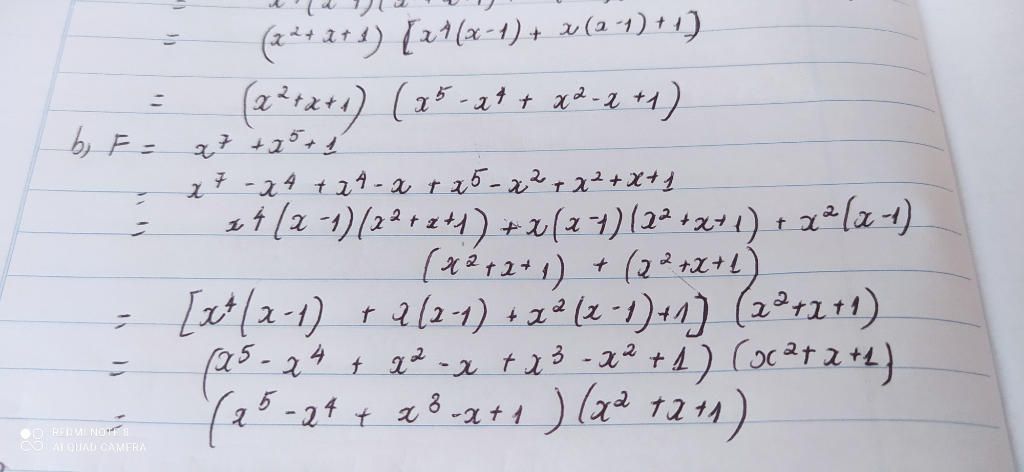 = (x²+x+1) [x⁴(x-1) + x(x-1)+1]
= (x²+x+1) (x⁵ - x⁴ + x² - x + 1)
b, F = x⁷ + x⁵ + 1
= x⁷ - x⁴ + x⁴ - x + x⁵ - x² + x² + x + 1
= x⁴(x-1)(x²+x+1) + x(x-1)(x²+x+1) + x²(x-1)
(x²+x+1) + (x²+x+1)
= [x⁴(x-1) + x(x-1) + x²(x-1)+1] (x²+x+1)
= (x⁵ - x⁴ + x² - x + x³ - x² + 1) (x²+x+1)
= (x⁵ - x⁴ + x³ - x + 1) (x² + x + 1)
REDMI NOTE 8
AI QUAD CAMERA